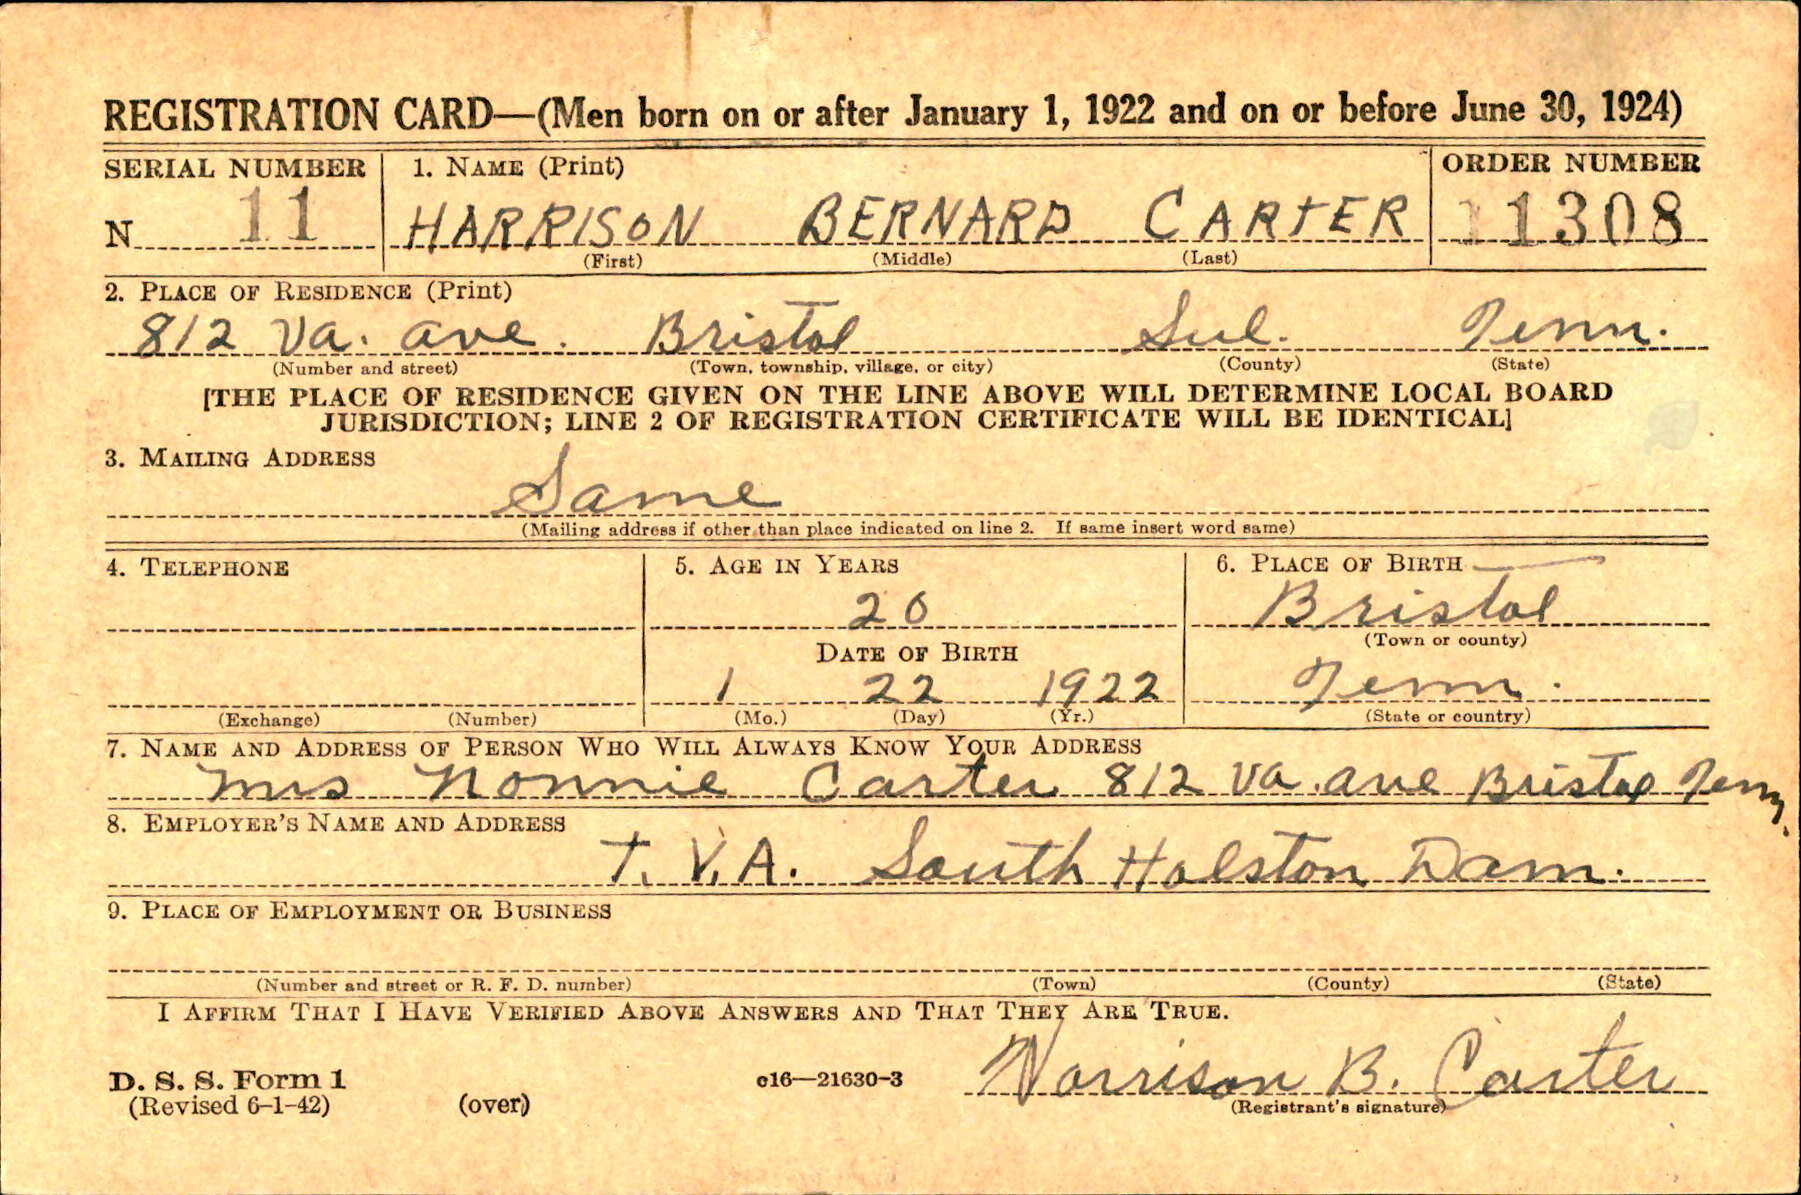 REGISTRATION CARD—(Men born on or after January 1, 1922 and on or before June 30, 1924)
SERIAL NUMBER 1. NAME (Print) ORDER NUMBER
N 11 HARRISON BERNARD CARTER 11308
(First) (Middle) (Last)
2. PLACE OF RESIDENCE (Print)
812 Va. ave. Bristol Sul. Tenn.
(Number and street) (Town, township, village, or city) (County) (State)
[THE PLACE OF RESIDENCE GIVEN ON THE LINE ABOVE WILL DETERMINE LOCAL BOARD
JURISDICTION; LINE 2 OF REGISTRATION CERTIFICATE WILL BE IDENTICAL]
3. MAILING ADDRESS
Same
(Mailing address if other than place indicated on line 2. If same insert word same)
4. TELEPHONE 5. AGE IN YEARS 6. PLACE OF BIRTH
20 Bristol
(Town or county)
DATE OF BIRTH
1 22 1922 Tenn.
(Exchange) (Number) (Mo.) (Day) (Yr.) (State or country)
7. NAME AND ADDRESS OF PERSON WHO WILL ALWAYS KNOW YOUR ADDRESS
Mrs Nonnie Carter 812 Va. ave Bristol Tenn.
8. EMPLOYER'S NAME AND ADDRESS
T. V. A. South Holston Dam.
9. PLACE OF EMPLOYMENT OR BUSINESS
(Number and street or R. F. D. number) (Town) (County) (State)
I AFFIRM THAT I HAVE VERIFIED ABOVE ANSWERS AND THAT THEY ARE TRUE.
D. S. S. Form 1
(Revised 6-1-42) (over) c16—21630-3 Harrison B. Carter
(Registrant's signature)